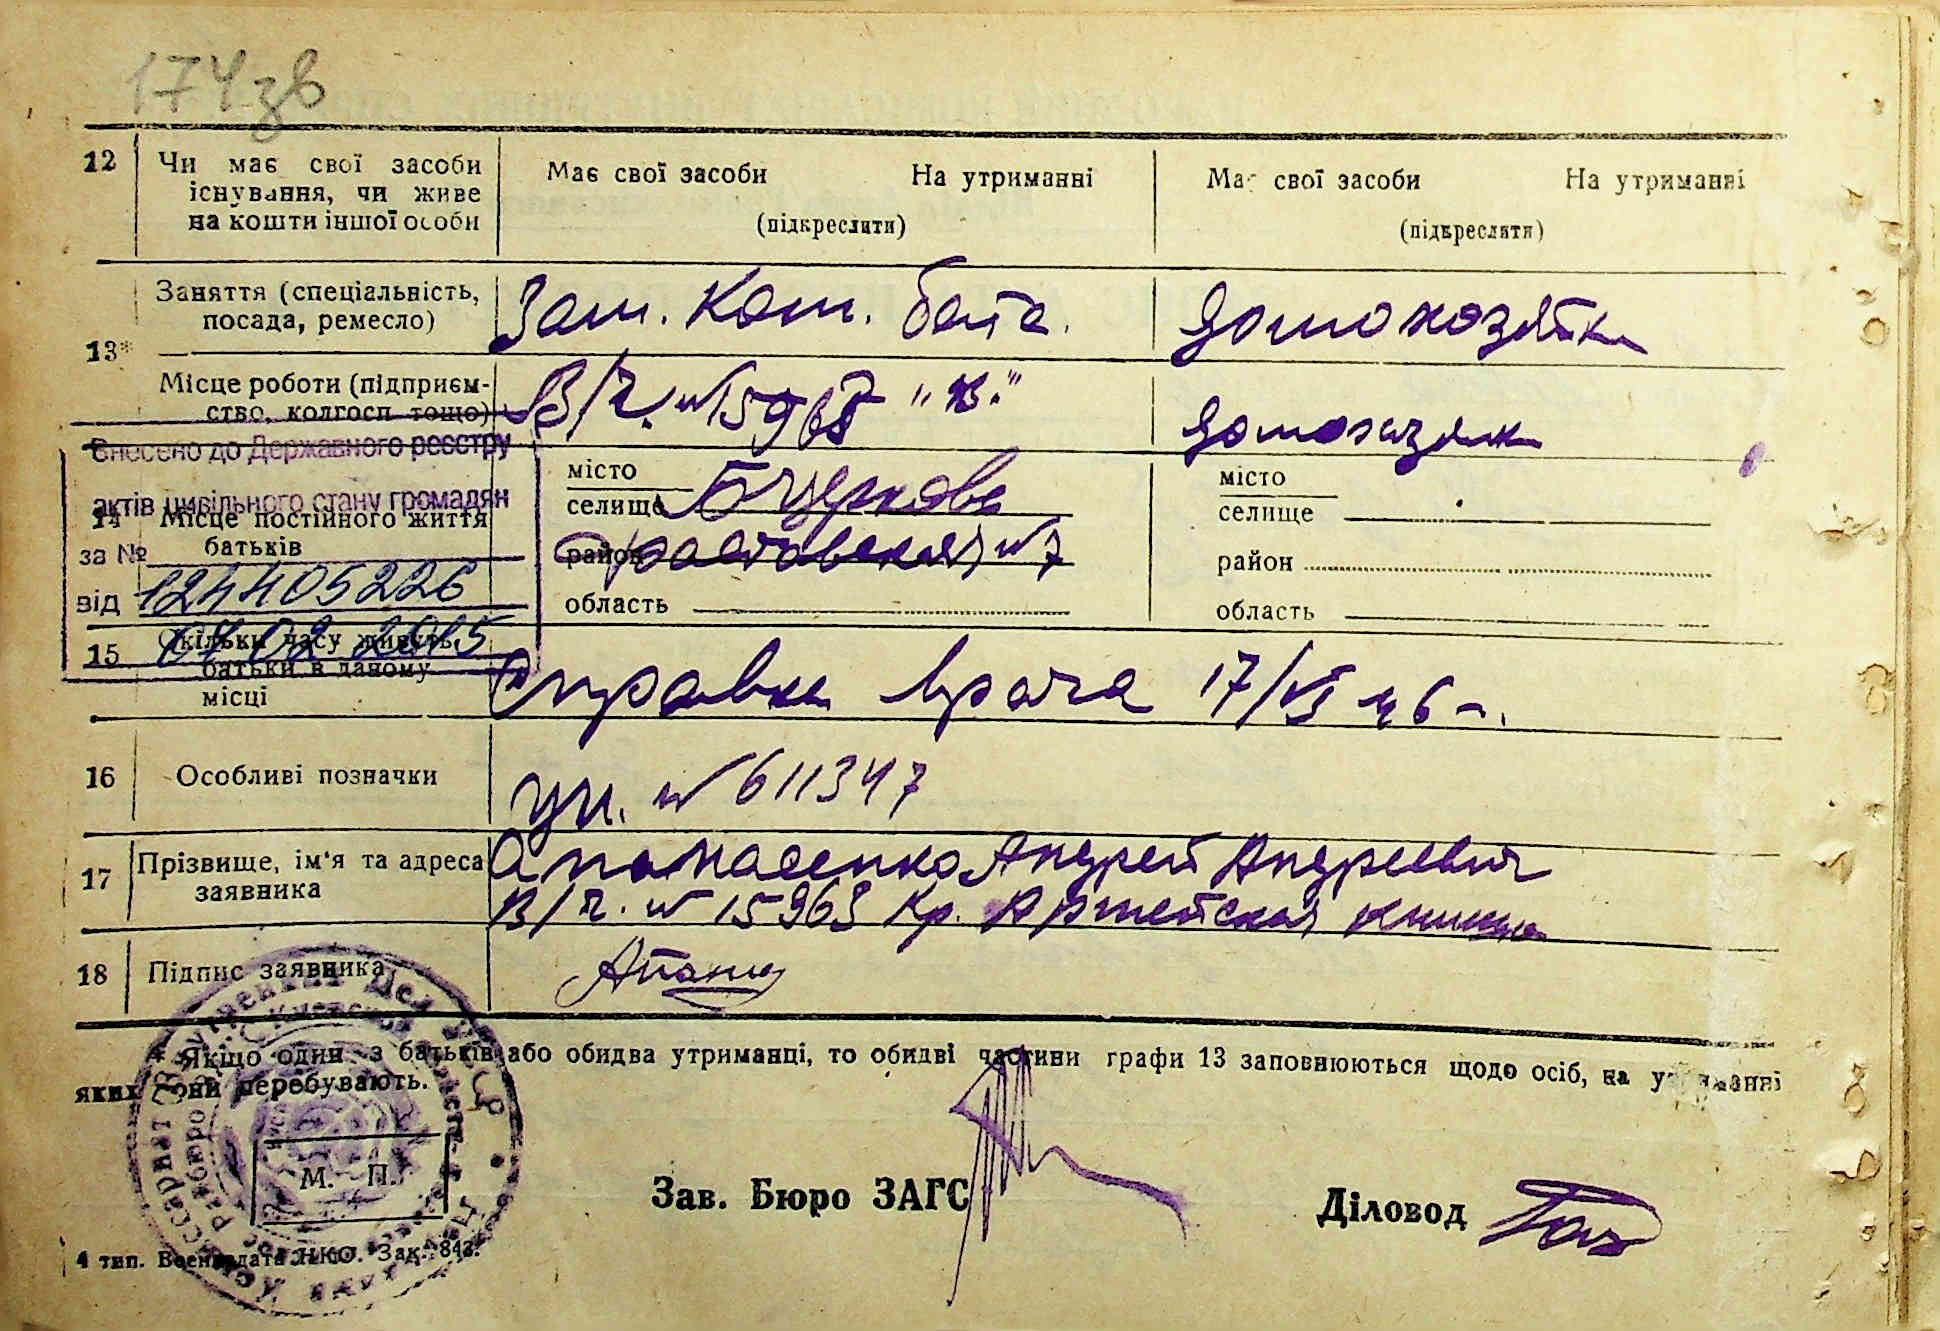 174 зв
12 Чи має свої засоби існування, чи живе на кошти іншої особи
Має свої засоби На утриманні
(підкреслити)
Має свої засоби На утриманні
(підкреслити)
13* Заняття (спеціальність, посада, ремесло)
Зам. Ком. бата.
домохозяйка
Місце роботи (підприємство, колгосп тощо)
В/ч. №
домохозяйк
Внесено до Державного реєстру
актів цивільного стану громадян
за №
124405226
від
07 02 2015
14 Місце постійного життя батьків
місто
селище
район №7
область
місто
селище
район
область
15 Скільки часу живуть батьки в даному місці
Справка врача 17/VI 46 г.
16 Особливі позначки
уд. № 611347
17 Прізвище, ім'я та адреса заявника
Апанасенко Андрей Андреевич
В/ч. № 15963 Кр. Армейская
18 Підпис заявника
* Якщо один з батьків або обидва утриманці, то обидві частини графи 13 заповнюються щодо осіб, на утриманні
яких вони перебувають.
М. П.
Зав. Бюро ЗАГС
Діловод
4 тип. Воениздата НКО. Зак. 843.